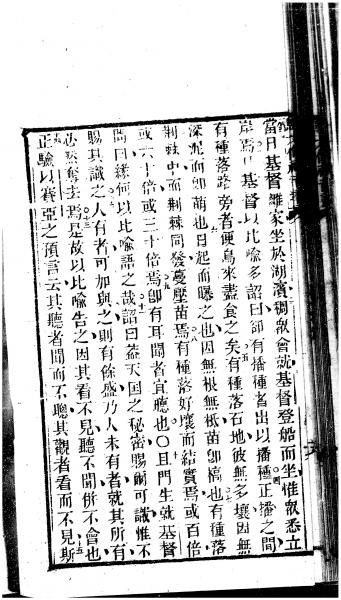 當日基督離家坐於湖濱稠眾會就基督登船而坐惟眾悉立
岸焉且基督以比喻多詔曰卻有播種者出以播種正播之間
有種落路旁者便鳥來盡食之矣有種落石地彼無多壤因無
深泥而卽萌也日起而曝之也因無根無柢苗卽槁也有種落
荆棘中而荆棘同發蔓壓苗焉有種落好壤而結實焉或百倍
或六十倍或三十倍焉卽有耳聞者宜聽也〇且門生就基督
問曰緣何以比喻語之哉詔曰蓋天国之秘密賜爾可識惟不
賜其識之人有者可加與之則有餘盛乃人未有者就其所有
必然奪去焉是故以比喻告之因其看不見聽不聞併不會也
正驗以賽亞之預言云其聽者聞而不聰其觀者看而不見斯